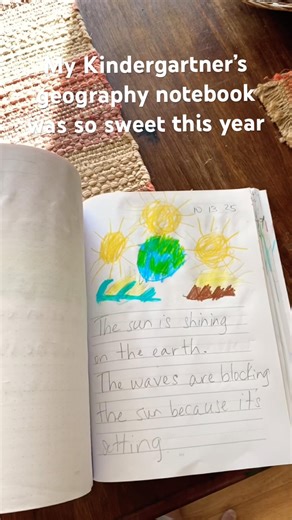 My Kindergartner's
geography notebook
was so sweet this year
10 13 25
The sun is shining
on the earth.
The waves are blocking
the sun because its
setting